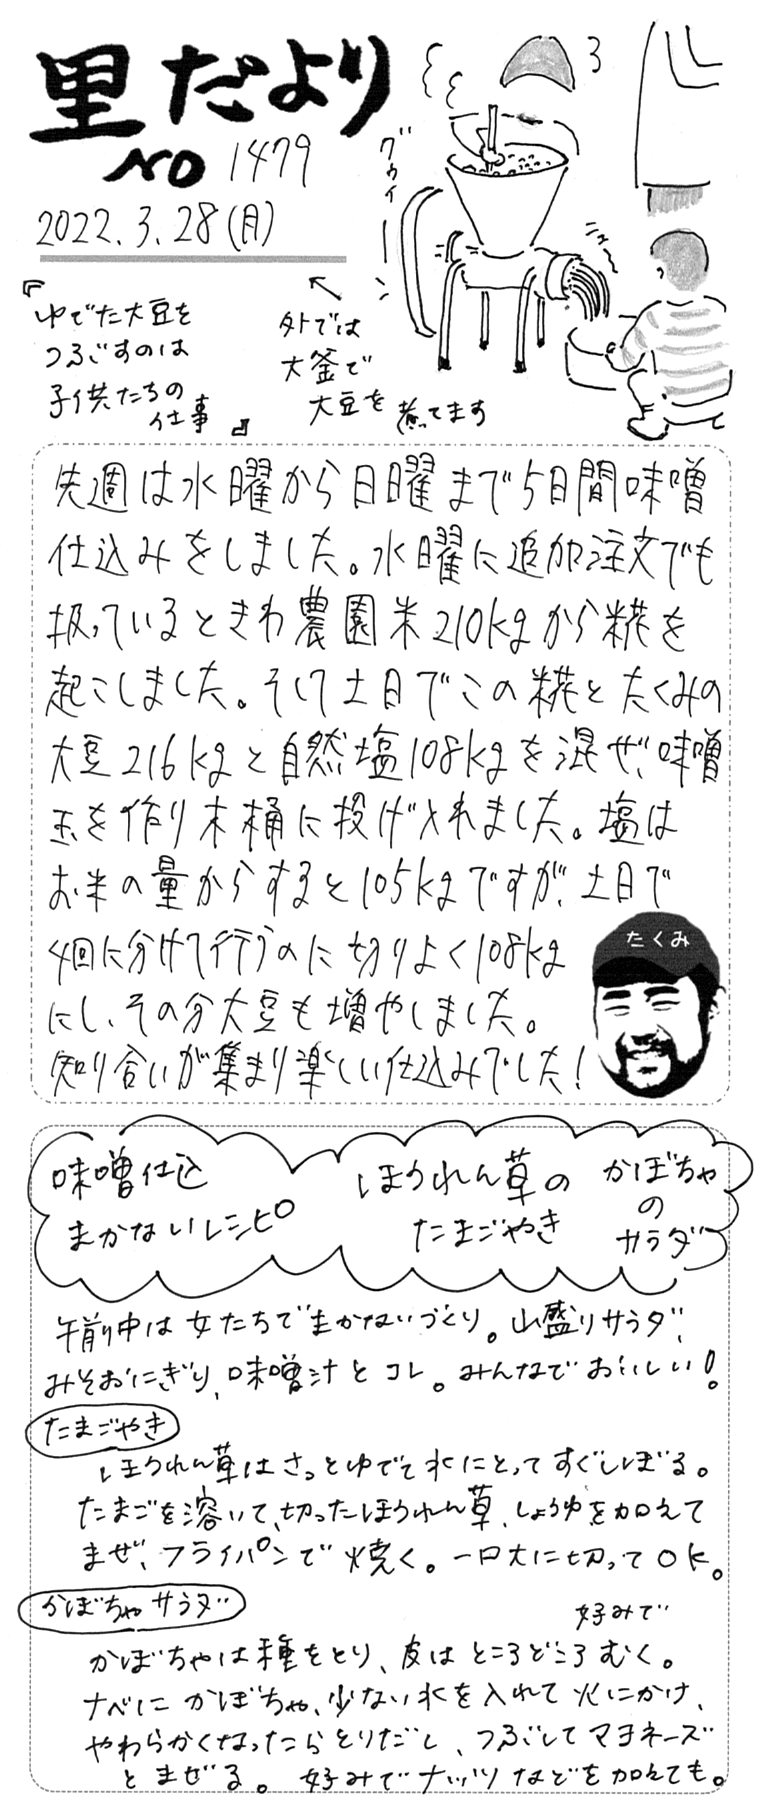 里だより
NO 1479
2022.3.28(月)
グゥィーン
『ゆでた大豆を
つぶすのは
子供たちの
仕事』
外では
大釜で
大豆を煮てます
先週は水曜から日曜まで5日間味噌
仕込みをしました。水曜に追加注文でも
扱っているときわ農園米210kgから糀を
起こしました。そして土日でこの糀とたくみの
大豆216kgと自然塩108kgを混ぜ、味噌
玉を作り木桶に投げ入れました。塩は
お米の量からすると105kgですが、土日で
4回に分けて行うのに切りよく108kg
にし、その分大豆も増やしました。
知り合いが集まり楽しい仕込みでした!
たくみ
味噌仕込
まかないレシピ
ほうれん草の
たまごやき
かぼちゃ
の
サラダ
午前中は女たちでまかないづくり。山盛りサラダ、
みそおにぎり、味噌汁とコレ。みんなでおいしい!
たまごやき
ほうれん草はさっとゆでて水にとってすぐしぼる。
たまごを溶いて、切ったほうれん草、しょうゆを加えて
まぜ、フライパンで焼く。一口大に切ってOK。
かぼちゃサラダ
好みで
かぼちゃは種をとり、皮はところどころむく。
ナベにかぼちゃ、少ない水を入れて火にかけ、
やわらかくなったらとりだし、つぶしてマヨネーズ
とまぜる。好みでナッツなどを加えても。